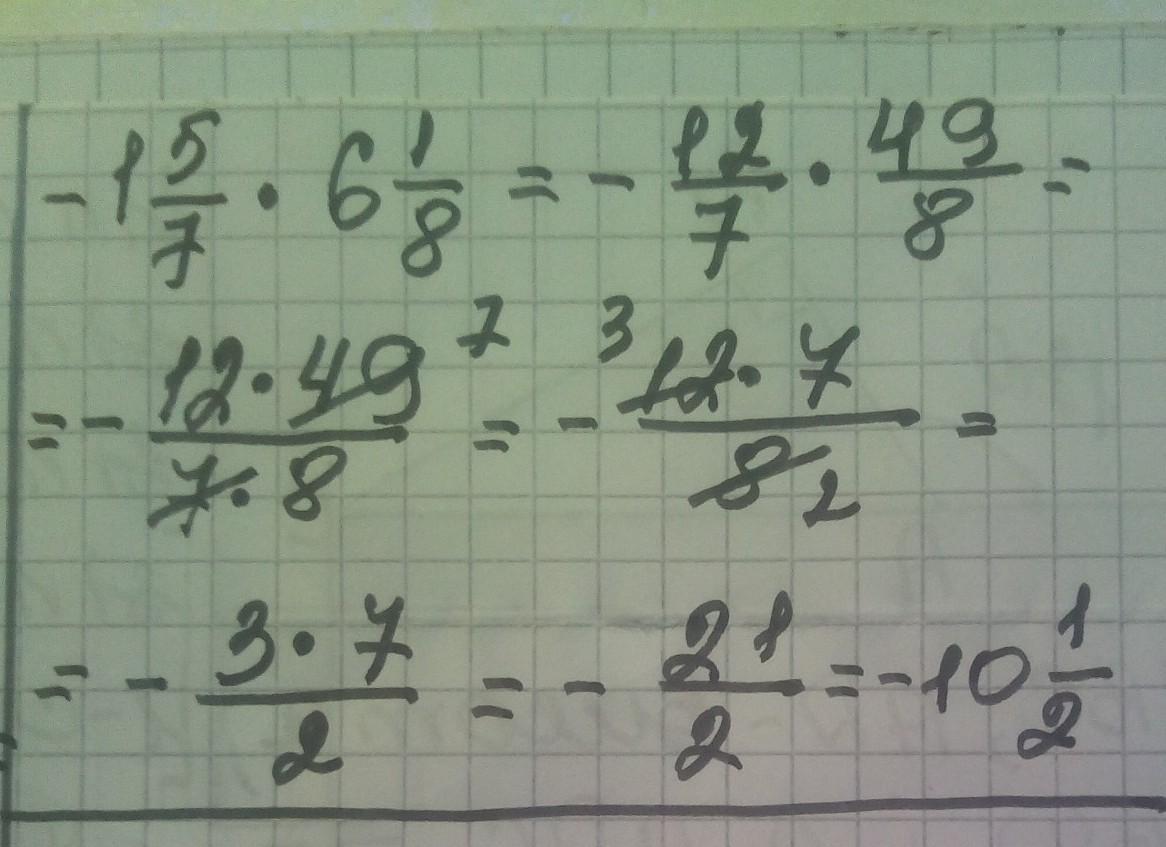 -1 5/7 · 6 1/8 = - 12/7 · 49/8 =
= - 12 · 49 7 / 7 · 8 = - 3 12 · 7 / 8 2 =
= - 3 · 7 / 2 = - 21/2 = -10 1/2